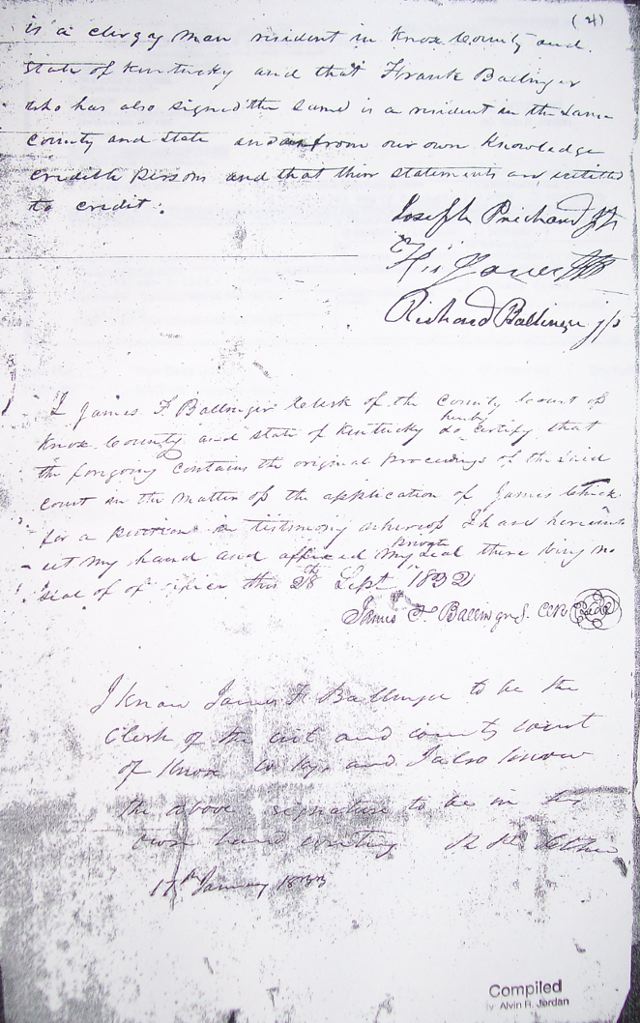 (4)
is a clergy man resident in Knox County and
state of Kentucky and that Frank Ballinger
who has also signed the same is a resident in the same
county and state and are from our own Knowledge
credible persons and that their statements are entitled
to credit.
Joseph Prichard
Jones
Richard Ballinger jp
I James F Ballinger Clerk of the County Court of
Knox County and state of Kentucky do hereby certify that
the forgoing contains the original proceedings of the said
court in the matter of the application of James
for a pension in testimony whereof I have hereunto
set my hand and affixed my private seal there being no
seal of of office this 28th Sept 1832
James F. Ballinger Seal
I know James F Ballinger to be the
Clerk of the cut and county court
of Knox Co Ky and I also know
the above signature to be in his
own hand writing
17th January 1833
Compiled
Alvin R. Jordan